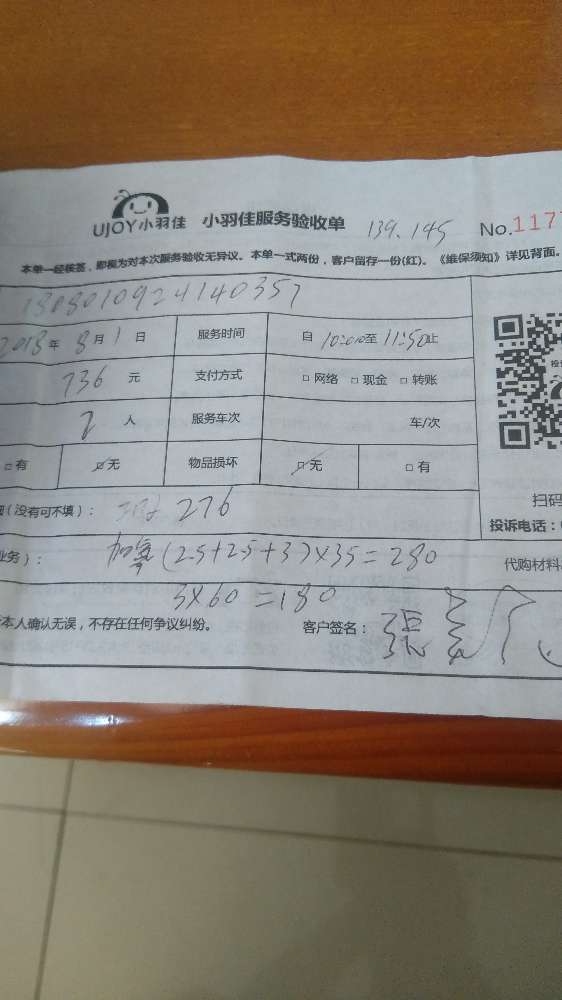 UJOY小羽佳 小羽佳服务验收单 139.145 No.117
本单一经核签，即视为对本次服务验收无异议。本单一式两份，客户留存一份(红)。《维保须知》详见背面。
1808010924140357
2018年8月1日 服务时间 自10:00至11:50止
736元 支付方式 □网络 □现金 □转账
2人 服务车次 车/次
□有 □无 物品损坏 □无 □有
扫码
(没有可不填)： 276
投诉电话：
业务)： 加氟(2.5+2.5+3)×35=280 代购材料
3×60=180
本人确认无误，不存在任何争议纠纷。 客户签名：張